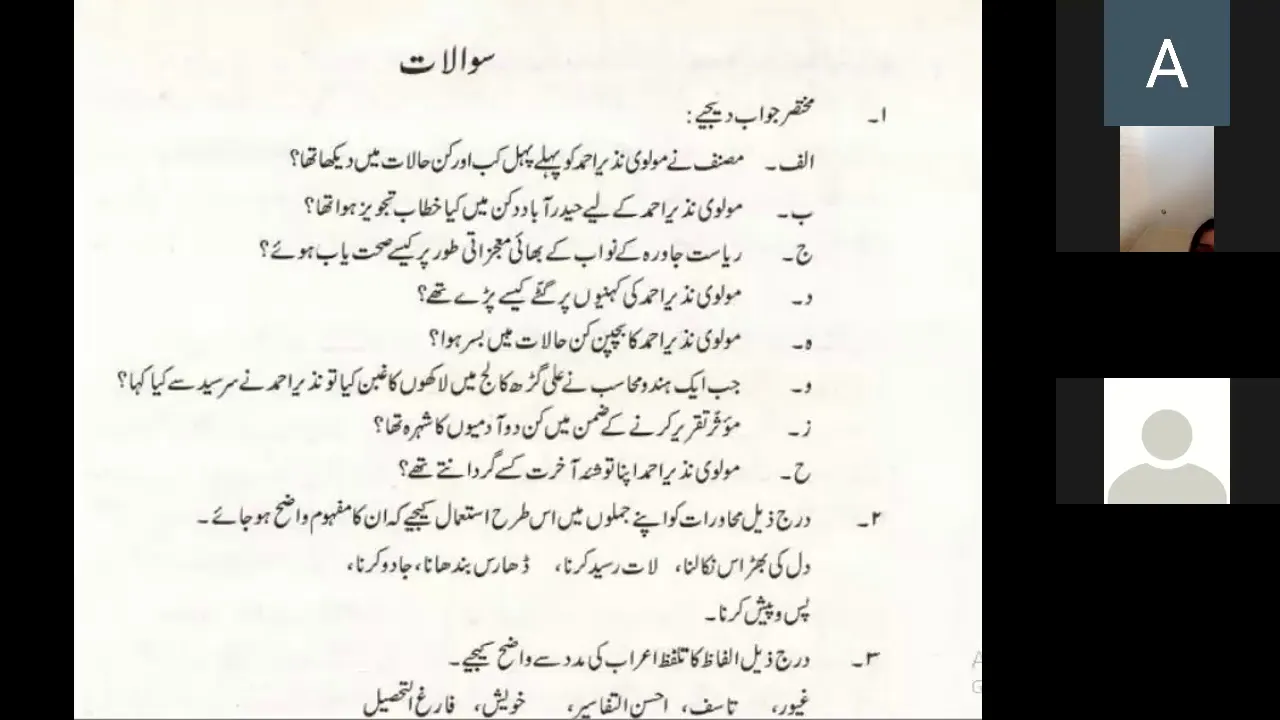 سوالات
۱۔ مختصر جواب دیجیے:
الف۔ مصنف نے مولوی نذیر احمد کو پہلے پہل کب اور کن حالات میں دیکھا تھا؟
ب۔ مولوی نذیر احمد کے لیے حیدر آباد دکن میں کیا خطاب تجویز ہوا تھا؟
ج۔ ریاست جاورہ کے نواب کے بھائی معجزاتی طور پر کیسے صحت یاب ہوئے؟
د۔ مولوی نذیر احمد کی کہنیوں پر گٹے کیسے پڑے تھے؟
ہ۔ مولوی نذیر احمد کا بچپن کن حالات میں بسر ہوا؟
و۔ جب ایک ہندو محاسب نے علی گڑھ کالج میں لاکھوں کا غبن کیا تو نذیر احمد نے سرسید سے کیا کہا؟
ز۔ مؤثر تقریر کرنے کے ضمن میں کن دو آدمیوں کا شہرہ تھا؟
ح۔ مولوی نذیر احمد اپنا توشۂ آخرت کسے گردانتے تھے؟
۲۔ درج ذیل محاورات کو اپنے جملوں میں اس طرح استعمال کیجیے کہ ان کا مفہوم واضح ہو جائے۔
دل کی بھڑاس نکالنا، لات رسید کرنا، ڈھارس بندھانا، جادو کرنا،
پس و پیش کرنا۔
۳۔ درج ذیل الفاظ کا تلفظ اعراب کی مدد سے واضح کیجیے۔
غیور، تاسف، احسن التفاسیر، خویش، فارغ التحصیل
A